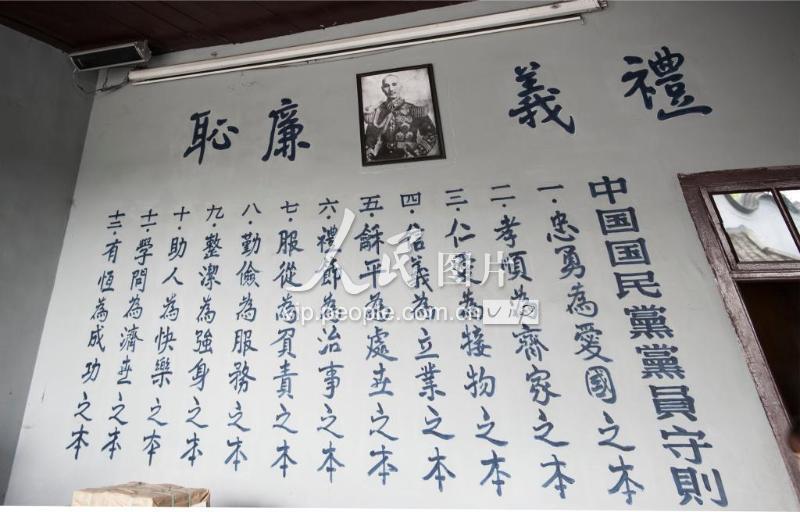 禮義廉恥
中国国民黨黨員守則
一·忠勇為愛國之本
二·孝順為齊家之本
三·仁愛為接物之本
四·信義為立業之本
五·龢平為處世之本
六·禮節為治事之本
七·服從為負責之本
八·勤儉為服務之本
九·整潔為強身之本
十·助人為快樂之本
十一·學問為濟世之本
十二·有恆為成功之本
人民图片
vip.people.com.cn